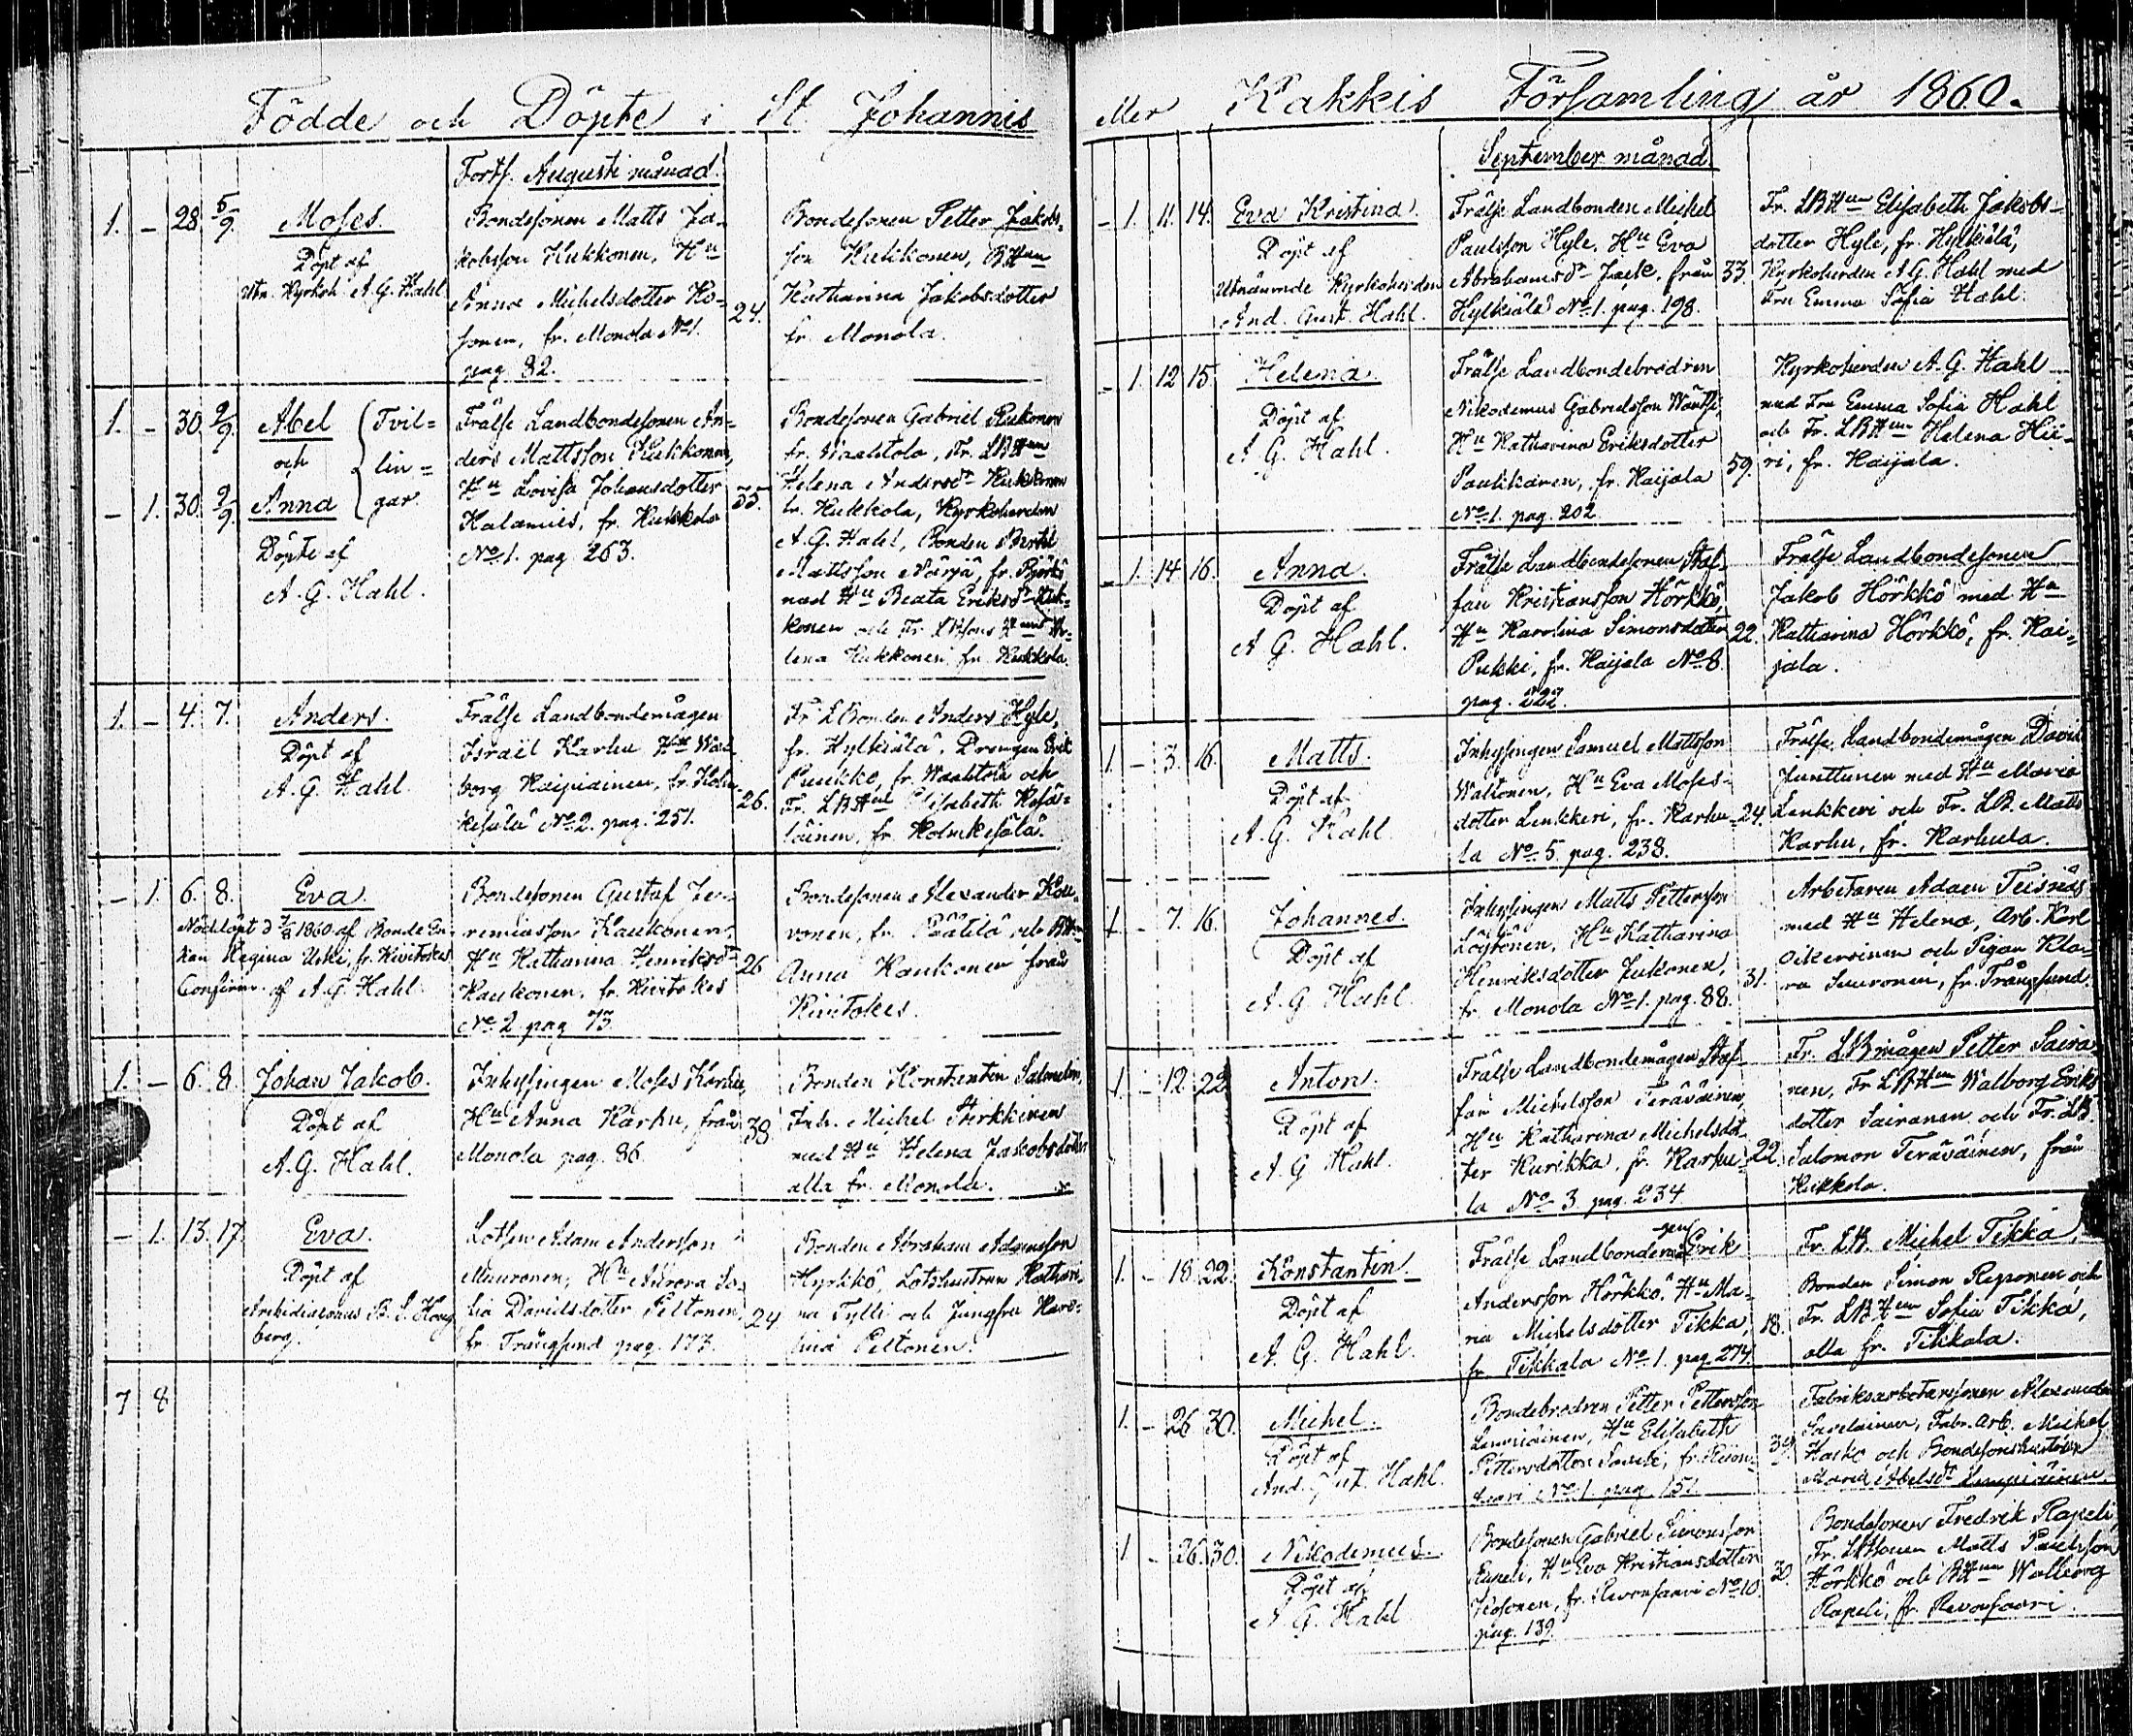 Födde och Döpte i St. Johannis
Fortf. Augusti månad.
1. – 28. 5/9. Moses.
Döpt af
Utn. Kyrkoh. A. G. Hahl
Bondesonen Matts Ja-
kobsson Kukkonen, Hu
Anna Michelsdotter Ko-
sonen, fr. Monola No 1.
pag. 82.
24.
Bondesonen Petter Jakobs-
son Kukkonen, BHun
Katharina Jakobsdotter
fr. Monola.
1. – 30. 2/9. Abel { Tvil=
och lin=
– 1. 30. 2/9. Anna gar.
Döpte af
A. G. Hahl.
Frälse Landbondesonen An-
ders Mattsson Kukkonen,
Hu Lovisa Johansdotter
Kalamies, fr. Kukkola
No 1. pag. 263.
35.
Bondesonen Gabriel
fr. Waahtola, Fr. LBHun
Helena Andersdr Kukkonen
fr. Kukkola, Kyrkoherden
A. G. Hahl, Bonden
Mattsson Närjä, fr.
med Hu Beata Eriksdr Kuk-
konen och Fr. He-
lena Kukkonen fr. Kukkola
1. – 4. 7. Anders.
Döpt af
A. G. Hahl.
Frälse Landbondemågen
Israel Karhu Hu Wal-
borg fr.
No 2. pag. 251.
26.
Fr LBonden Anders Hyle,
fr. Hylkiälä, Drengen Erik
fr. Waahtola och
Fr. LBHun Elisabeth Kesä-
läinen, fr. Holmkesälä.
– 1. 6. 8. Eva.
Nöddöpt d 7/8 1860 af Bonde En-
kan Regina Uski, fr. Kivitokes
Confirm. af A. G. Hahl.
Bondesonen Gustaf Je-
remiasson Kaukonen,
Hu Katharina Henriksdr
Kaukonen, fr. Kivitokes
No 2 pag 73
26
Bondesonen Alexander Kou-
vonen, fr. Päätilä och
Anna Kaukonen från
Kivitokes.
1. – 6. 8 Johan Jakob.
Döpt af
A. G. Hahl.
Inhysingen Moses Karhu,
Hu Anna Karhu, från
Monola pag. 86.
38
Bonden Konstantin
Inh. Michel Pirkkinen
med Hu Helena Jakobsdotter
alla fr. Monola.
– 1. 13. 17. Eva.
Döpt af
Arkidiaconus B. S. Hong-
berg.
Lotsen Adam Andersson
Muuronen, Hu Aurora So-
fia Davidsdotter Peltonen,
fr. Trångsund pag. 173.
24
Bonden Abraham Adamsson
Hyrkkö, Lotshustrun Kathari-
na Tylli och Jungfru Karo-
lina Peltonen.
7 8
eller Kakkis Församling år 1860.
September månad.
– 1. 11. 14. Eva Kristina.
Döpt af
Utnämnde Kyrkoherden
And. Gust. Hahl.
Frälse Landbonden Michel
Paulsson Hyle, Hu Eva
Abrahamsdr från
Hylkiälä No 1. pag. 198.
33.
Fr. LBHun Elisabeth Jakobs-
dotter Hyle, fr. Hylkiälä,
Kyrkoherden A. G. Hahl med
Fru Emma Sofia Hahl.
– 1. 12 15. Helena.
Döpt af
A. G. Hahl.
Frälse Landbondebrodren
Nikodemus Gabrielsson
Hu Katharina Eriksdotter
Paukkanen, fr. Kaijala
No 1. pag. 202
39.
Kyrkoherden A. G. Hahl
med Fru Emma Sofia Hahl
och Fr. LBHun Helena Hii-
ri, fr. Kaijala.
– 1. 14 16. Anna
Döpt af
A. G. Hahl.
Frälse Landbondesonen Staf-
fan Kristiansson Hörkkö,
Hu Karolina Simonsdotter
Pukki, fr. Kaijala No 8.
pag. 222.
22.
Frälse Landbondesonen
Jakob Hörkkö med Hu
Katharina Hörkkö, fr. Kai-
jala.
1. – 3. 16. Matts.
Döpt af
A. G. Hahl.
Inhysingen Samuel Mattsson
Waltonen, Hu Eva Moses-
dotter Lenkkeri, fr. Karhu-
la No 5. pag. 238.
24.
Frälse Landbondemågen David
Junttunen med Hu Maria
Lenkkeri och Fr. LB. Matts
Karhu, fr. Karhula.
1. – 7. 16. Johannes.
Döpt af
A. G. Hahl.
Inhysingen Matts Pettersson
Löytönen, Hu Katharina
Henriksdotter Jukonen,
fr. Monola No 1. pag. 88.
31.
Arbetaren Adam
med Hu Helena, Arb. Karl
Oikervinen och Pigan Kla-
ra Suuronen, fr. Trångsund.
1. – 12. 22. Anton.
Döpt af
A. G Hahl.
Frälse Landbondemågen Staf-
fan Michelsson Teräväinen,
Hu Katharina Michelsdot-
ter Kurikka, fr. Karhu-
la No 3 pag. 234
22.
Fr. LBmågen Petter Saira-
nen, Fr LBHun Walborg Eriks-
dotter Sairanen och Fr. LB.
Salomon Teräväinen, från
Kukkola.
1. – 18. 22. Konstantin.
Döpt af
A. G. Hahl.
Frälse Landbondesonen Erik
Andersson Hörkkö, Hu Ma-
ria Michelsdotter Tikka,
fr. Tikkala No 1. pag. 274.
18.
Fr. LB. Michel Tikka,
Bonden Simon Reponen och
Fr. LBHun Sofia Tikka,
alla fr. Tikkala.
1. – 26 30. Michel.
Döpt af
And. Gust. Hahl.
Bondebrodren Petter Pettersson
Lempiäinen, Hu Elisabeth
Pettersdotter
No 1. pag. 151.
39.
Fabriksarbetaresonen Alexander
Savolainen, Fabr. Arb. Michel
och Bondesonshustrun
Maria Abelsdr Lempiäinen.
1 – 26. 30. Nikodemus.
Döpt af
A. G. Hahl
Bondesonen Gabriel Simonsson
Hu Eva Kristiansdotter
fr. Revonsaari No 10.
pag. 139.
30.
Bondesonen Fredrik Rapeli,
Fr. LBsonen Matts Paulsson
Hörkkö och BHun Walborg
Rapeli, fr. Revonsaari.